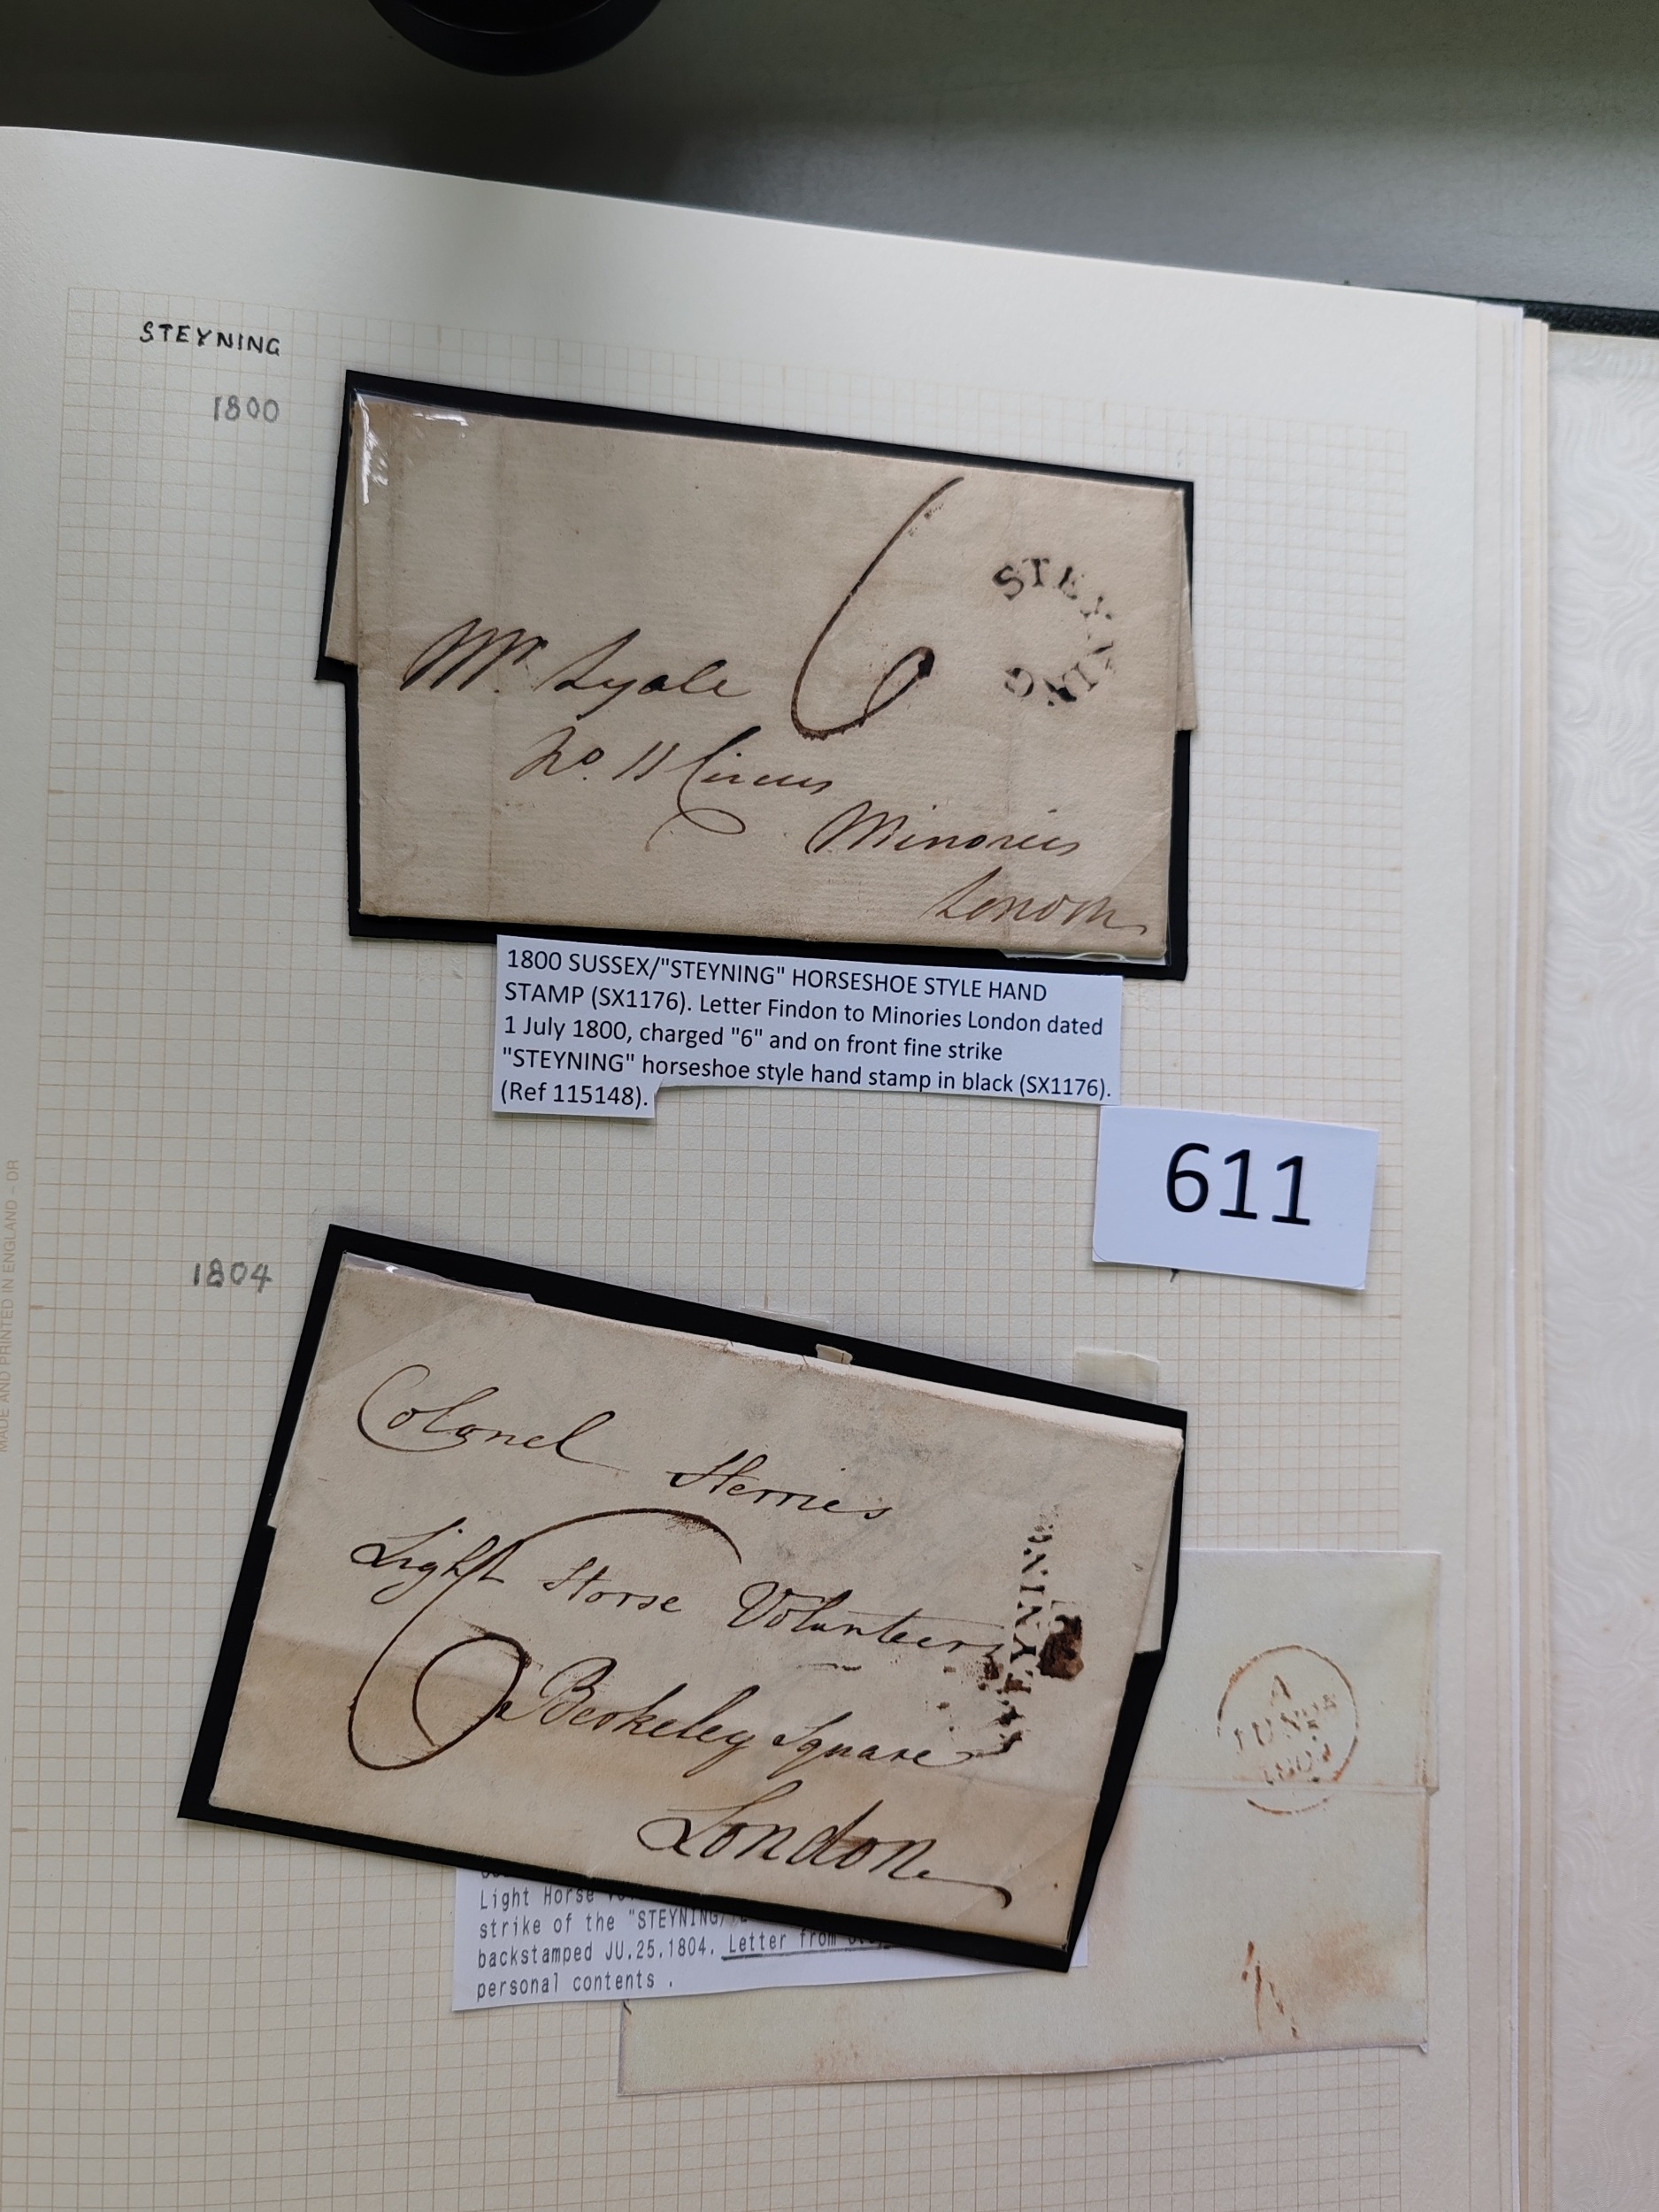 STEYNING
1800
6
STEYNING
Mr. Lyale
No. 11 Circus
Minories
London
1800 SUSSEX/"STEYNING" HORSESHOE STYLE HAND
STAMP (SX1176). Letter Findon to Minories London dated
1 July 1800, charged "6" and on front fine strike
"STEYNING" horseshoe style hand stamp in black (SX1176).
(Ref 115148).
611
MADE AND PRINTED IN ENGLAND - DR
1804
Colonel Herries
Light Horse Volunteers
6
STEYNING
Berkeley Square
London
Light Horse
strike of the "STEYNING/
backstamped JU.25.1804. Letter from
personal contents .